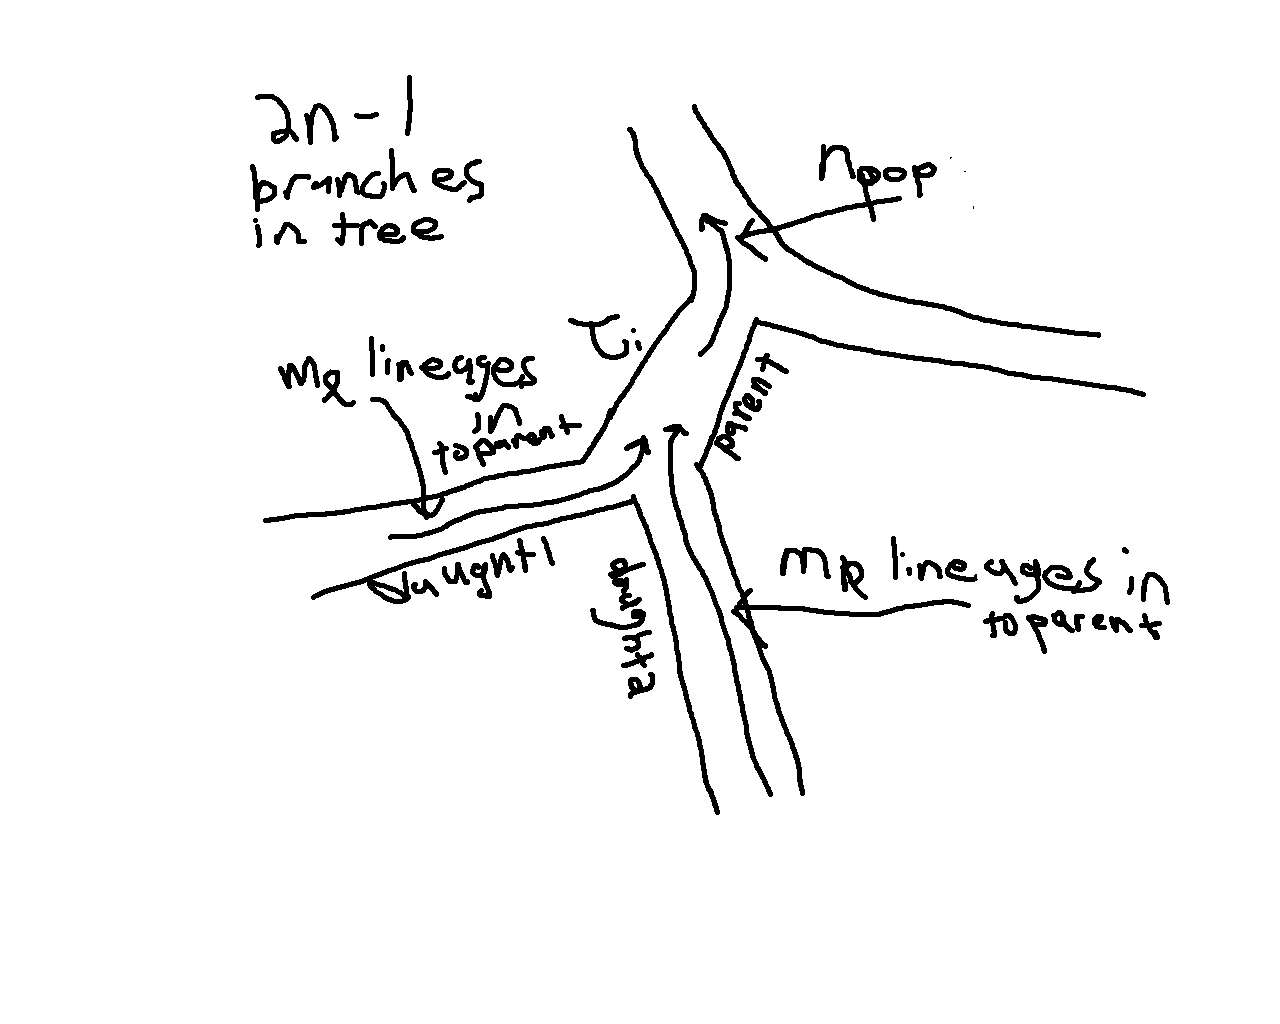 2n-1
branches
in tree
n pop
τi
mℓ lineages
in
to parent
parent
daught1
daught2
mR lineages in
to parent